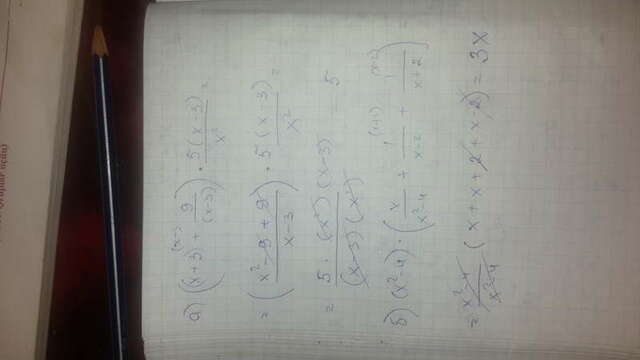 а) ((x+3) + 9/(x-3)) · 5(x-3)/x² =
= ((x² - 9 + 9)/(x-3)) · 5(x-3)/x² =
= 5·(x²)(x-3)/((x-3)(x²)) = 5
б) (x²-4)·(x/(x²-4) + 1/(x-2) + 1/(x+2))
= (x²-4)/(x²-4) (x + x + 2 + x - 2) = 3x